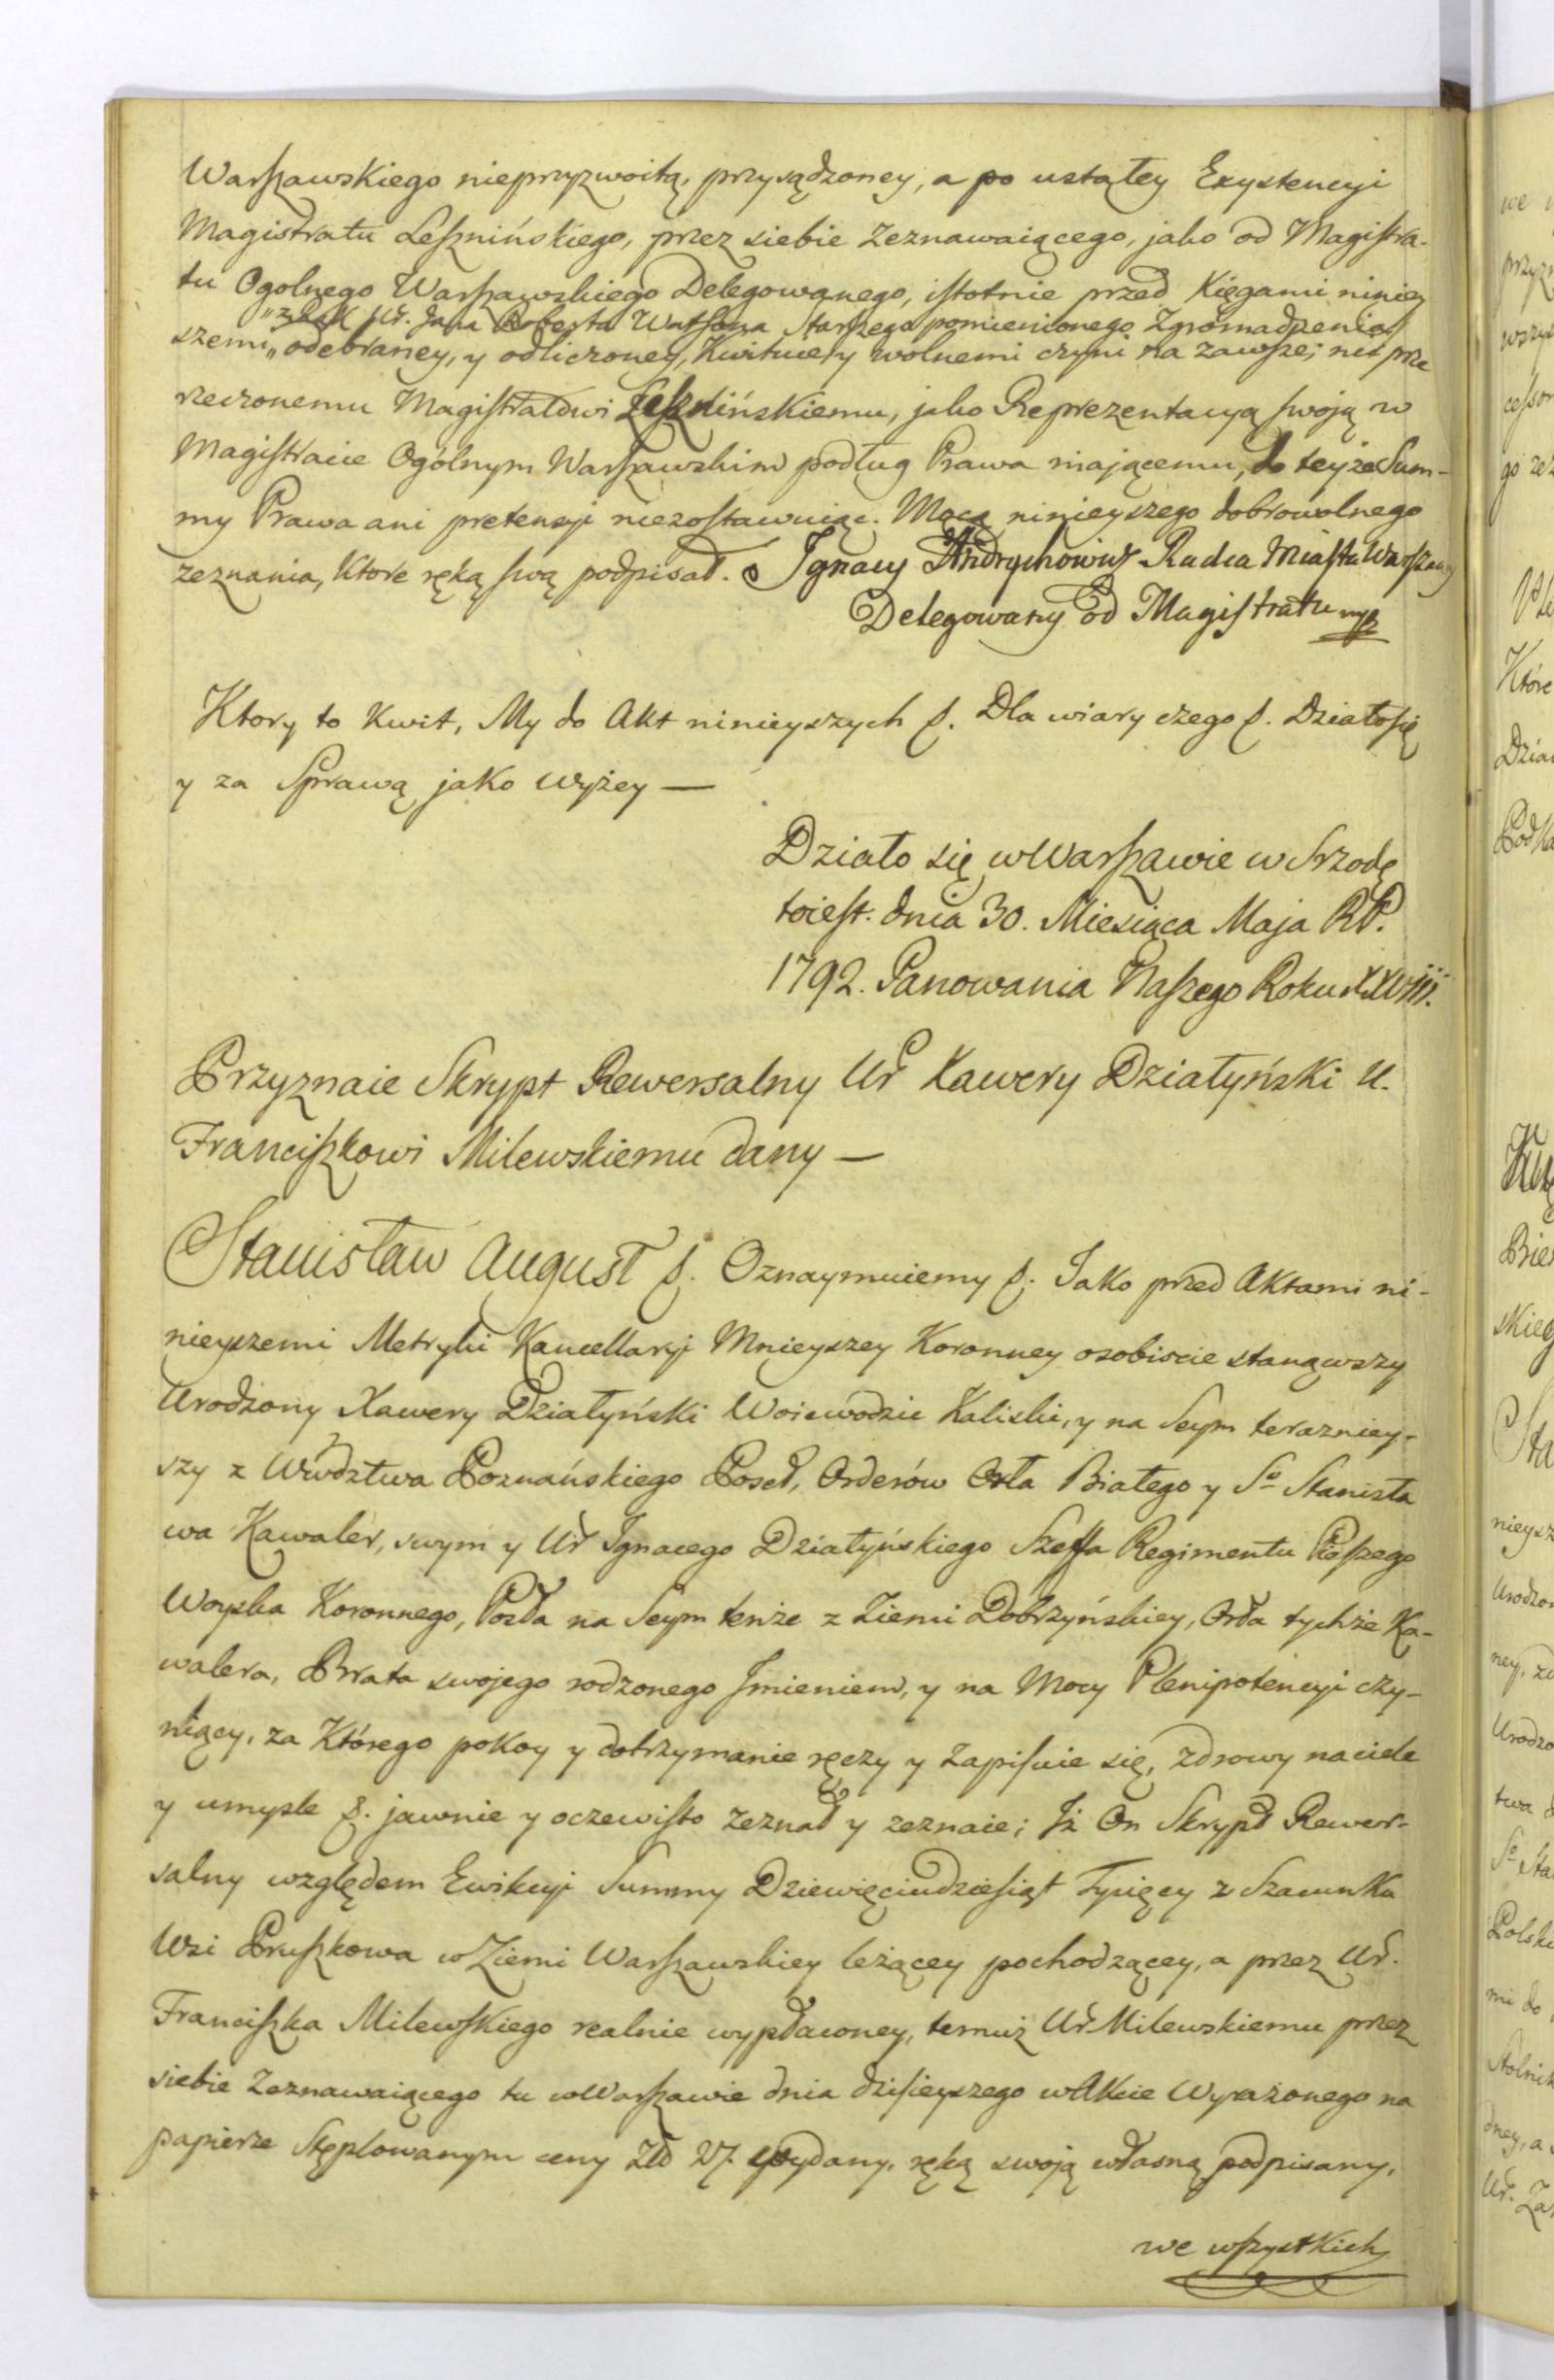 Warszawskiego nieprzyzwoitą, przysądzoney, a po ustałey Exystencyi
Magistratu Leszninskiego, przez siebie Zeznawaiącego, jako od Magistra-
tu Ogolnego Warszawskiego Delegowanego, istotnie przed Xięgami niniey
„z rąk Ur. Jana Roberta Watsona Starszego pomienionego Zgromadzenia
szemi„ odebraney, y odliczoney, Kwituie y wolnemi czyni na zawsze; nic prze
rzeczonemu Magistratowi Leszninskiemu, jako Reprezentacyą swoją w
Magistracie Ogólnym Warszawskim podług Prawa maiącemu, do teyże Sum-
my Prawa ani pretensyi niezostawuiąc. Mocą ninieyszego dobrowolnego
zeznania, Ktore ręką swą podpisał. Ignacy Andrychowicz Radca Miasta Warszawy
Delegowany od Magistratu mpp
Ktory to Kwit, My do Akt ninieyszych p. Dla wiary czego p. Działo się
y za Sprawą jako wyżey —
Działo się w Warszawie w Srzodę
toiest. dnia 30. Miesiąca Maja RP.
1792. Panowania Naszego Roku XXVIII.
Przyznaie Skrypt Rewersalny Ur Xawery Działyński U.
Franciszkowi Milewskiemu dany —
Stanisław August p. Oznaymuiemy p. Jako przed Aktami ni-
nieyszemi Metryki Kancellaryi Mnieyszey Koronney osobiscie stanąwszy
Urodzony Xawery Działyński Woiewodzic Kaliski, y na Seym terazniey-
szy z Wwdztwa Poznańskiego Poseł, Orderów Orła Białego y So Stanisła
wa Kawaler, swym y Ur Ignacego Działyńskiego Szeffa Regimentu Pieszego
Woyska Koronnego, Posła na Seym tenże z Ziemi Dobrzyńskiey, Orła tychże Ka-
walera, Brata swojego rodzonego Jmieniem, y na Mocy Plenipotencyi czy-
niący, za Którego pokoy y dotrzymanie ręczy y Zapisuie się, zdrowy na ciele
y umysle p. jawnie y oczewisto zeznał y zeznaie; Iż On Skrypt Rewer-
salny względem Ewikcyi Summy Dziewięciudziesiąt Tysięcy z Szacunku
Wsi Pruszkowa w Ziemi Warszawskiey leżącey pochodzącey, a przez Ur.
Franciszka Milewskiego realnie wypłaconey, temuż Ur Milewskiemu przez
siebie Zeznawaiącego tu w Warszawie dnia dzisieyszego w Akcie Wyrażonego na
papierze Stęplowanym ceny Zł 27. wydany, ręką swoją własną podpisany,
we wszystkich